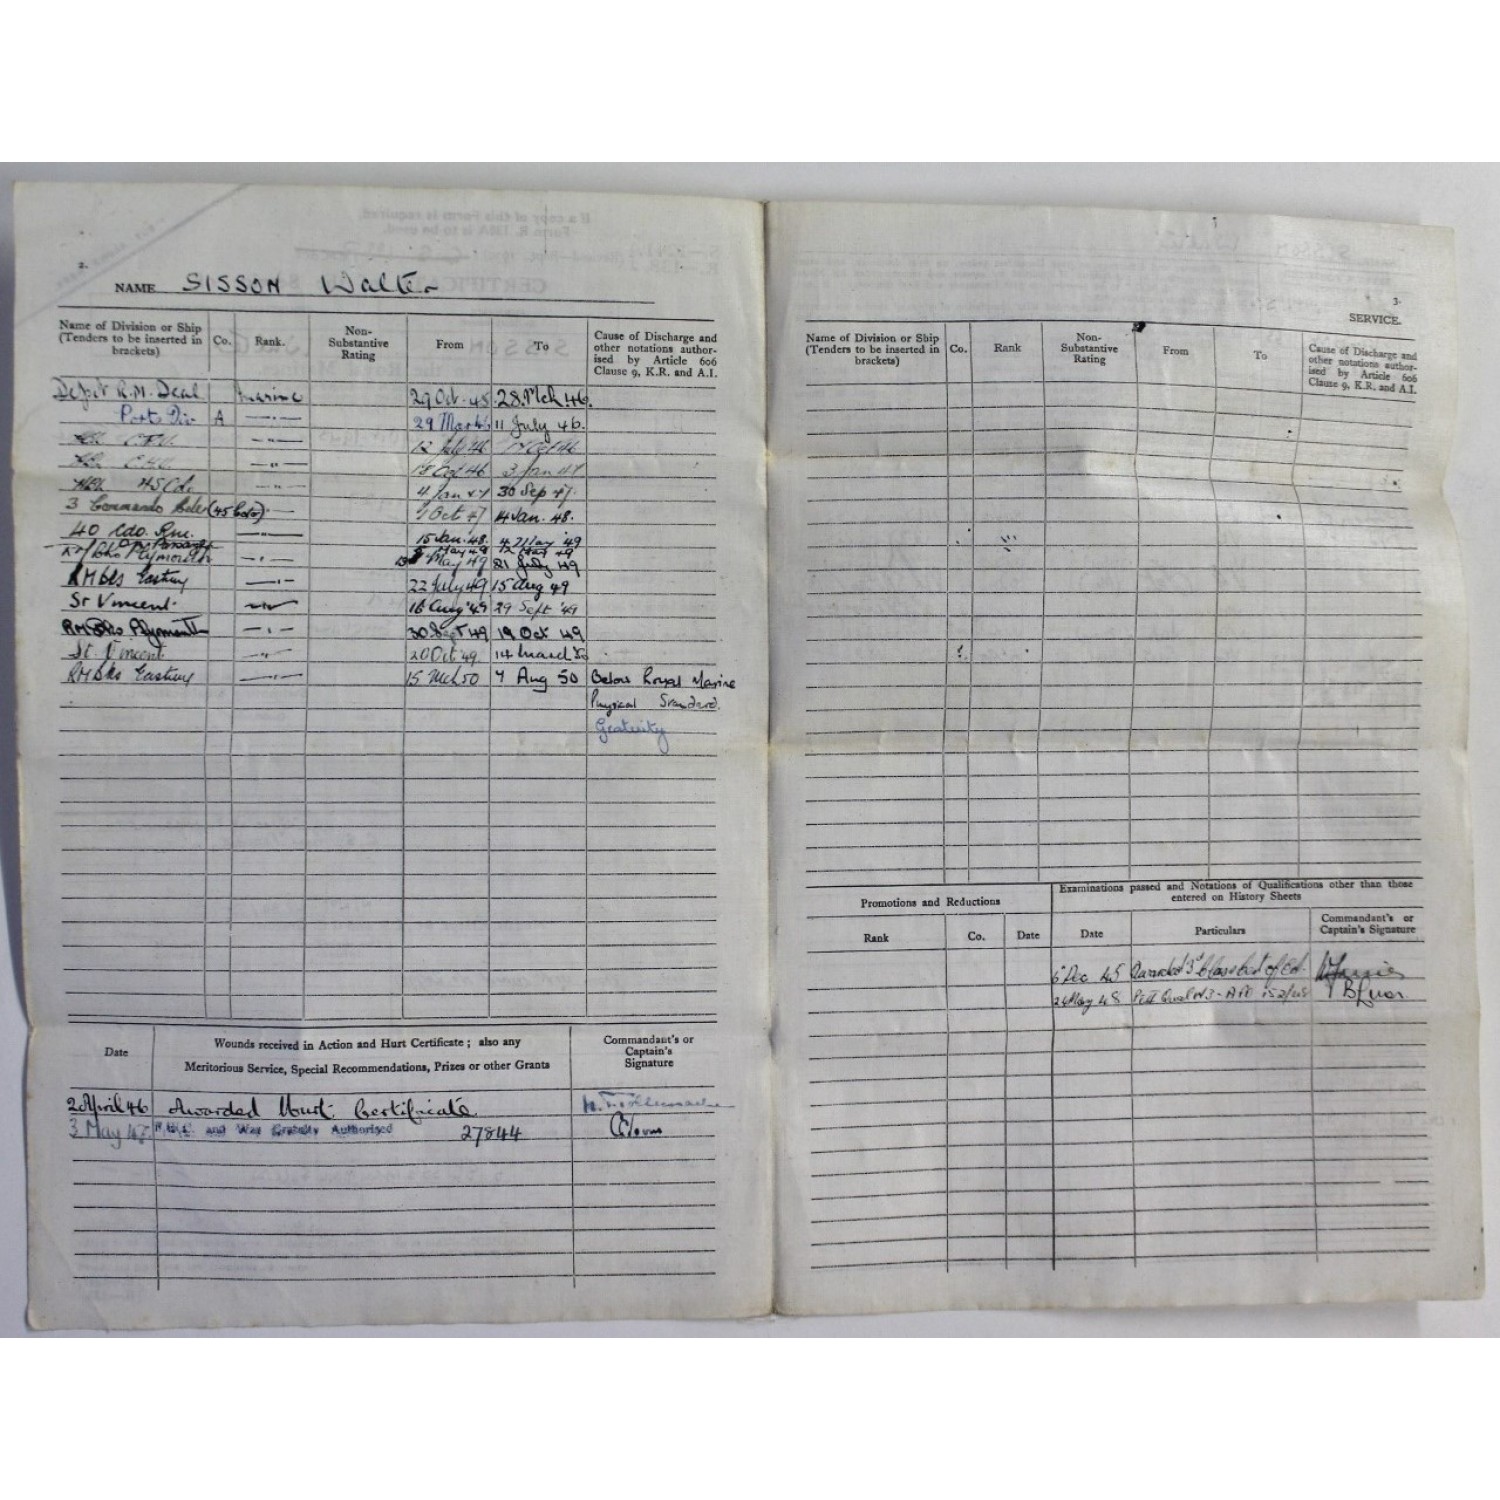 2.
NAME SISSON Walter
Name of Division or Ship (Tenders to be inserted in brackets) Co. Rank. Non-Substantive Rating From To Cause of Discharge and other notations authorised by Article 606 Clause 9, K.R. and A.I.
Depot R.M. Deal Marine 29 Oct. 45 28 Mch 46.
Port Div A —"— 29 Mar 46 11 July 46.
—"— 12 July 46
—"— 18 Oct 46 3 Jan 47
45 Cdo. —"— 4 Jan 47 30 Sep 47.
3 Commando Bde (45 Cdo) —"— 1 Oct 47 14 Jan. 48.
40 Cdo. R.M. —"— 15 Jan. 48. 4 May '49
Plymouth —"— 13 May 49 21 July 49
RM Bks Eastney —"— 22 July 49 15 Aug 49
St Vincent. —"— 16 Aug '49 29 Sept '49
RM Bks Plymouth —"— 30 Sept 49 19 Oct 49
St. Vincent —"— 20 Oct 49 14 March 50
RM Bks Eastney —"— 15 Mch 50 7 Aug 50 Below Royal Marine
Physical Standard.
Gratuity
Date Wounds received in Action and Hurt Certificate ; also any Meritorious Service, Special Recommendations, Prizes or other Grants Commandant's or Captain's Signature
2 April 46 Awarded Hurt Certificate
3 May and War Gratuity Authorised 27844
3.
SERVICE.
Name of Division or Ship (Tenders to be inserted in brackets) Co. Rank Non-Substantive Rating From To Cause of Discharge and other notations authorised by Article 606 Clause 9, K.R. and A.I.
Promotions and Reductions Examinations passed and Notations of Qualifications other than those entered on History Sheets
Rank Co. Date Date Particulars Commandant's or Captain's Signature
6 Dec 45 Awarded 3rd Class Cert of Ed.
24 May 48